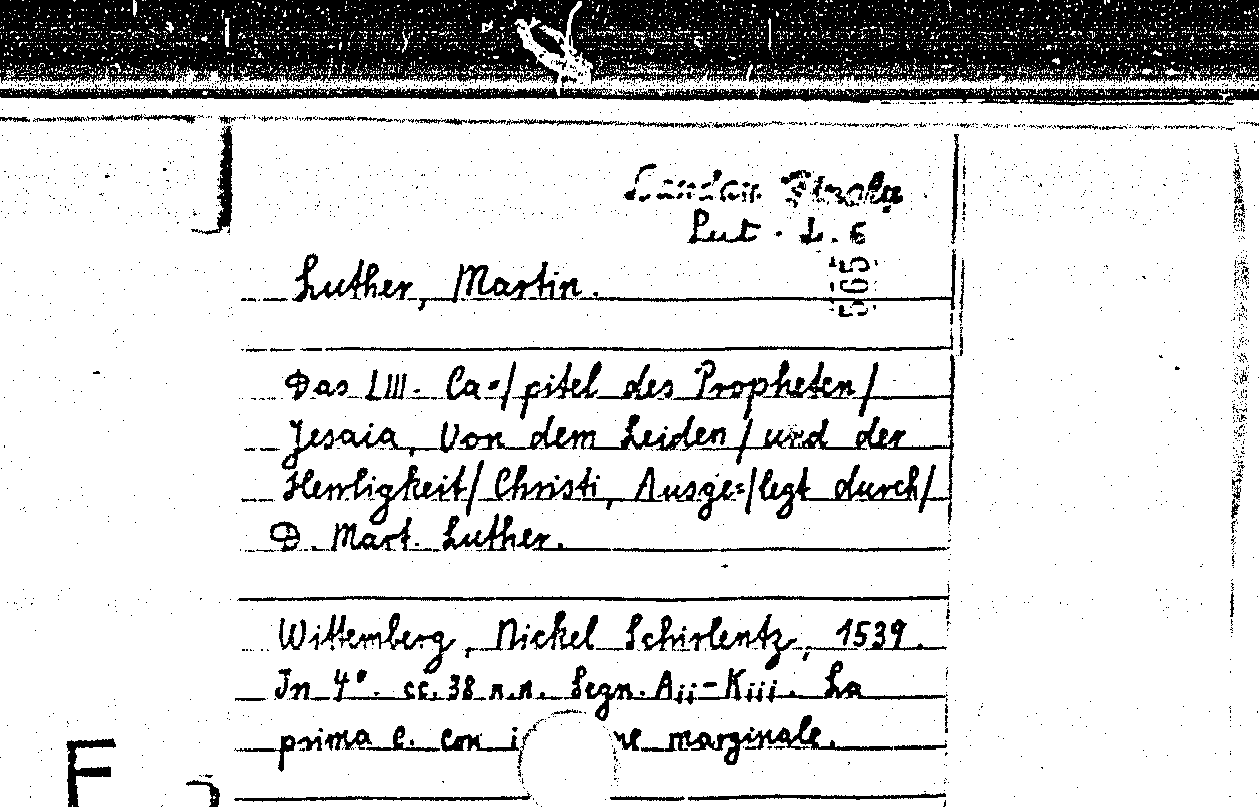 Lut. L. 6
565
Luther, Martin.
Das LIII. Ca=/pitel des Propheten/
Jesaia, Von dem Leiden/und der
Herrligkeit/Christi, Ausge=/legt durch/
D. Mart. Luther.
Wittemberg, Nickel Schirlentz, 1539.
In 4°. cc. 38 n.n. Segn. Aii-Kiii. La
prima c. con marginale.
E